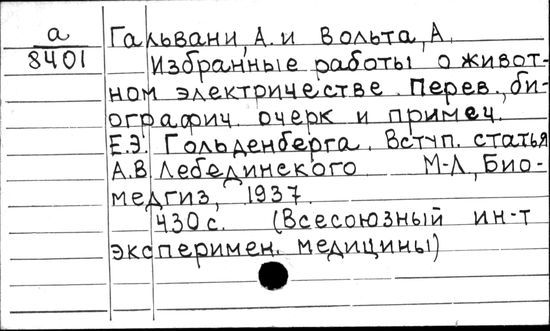 а
8401
Гальвани, А. и Вольта, А.
Избранные работы о живот-
ном электричестве. Перев., би-
ографич. очерк и примеч.
Е.Э. Гольденберга. Вступ. статья
А.В. Лебединского М-Л, Био-
медгиз, 1937.
430 с. (Всесоюзный ин-т
эксперимен. медицины)